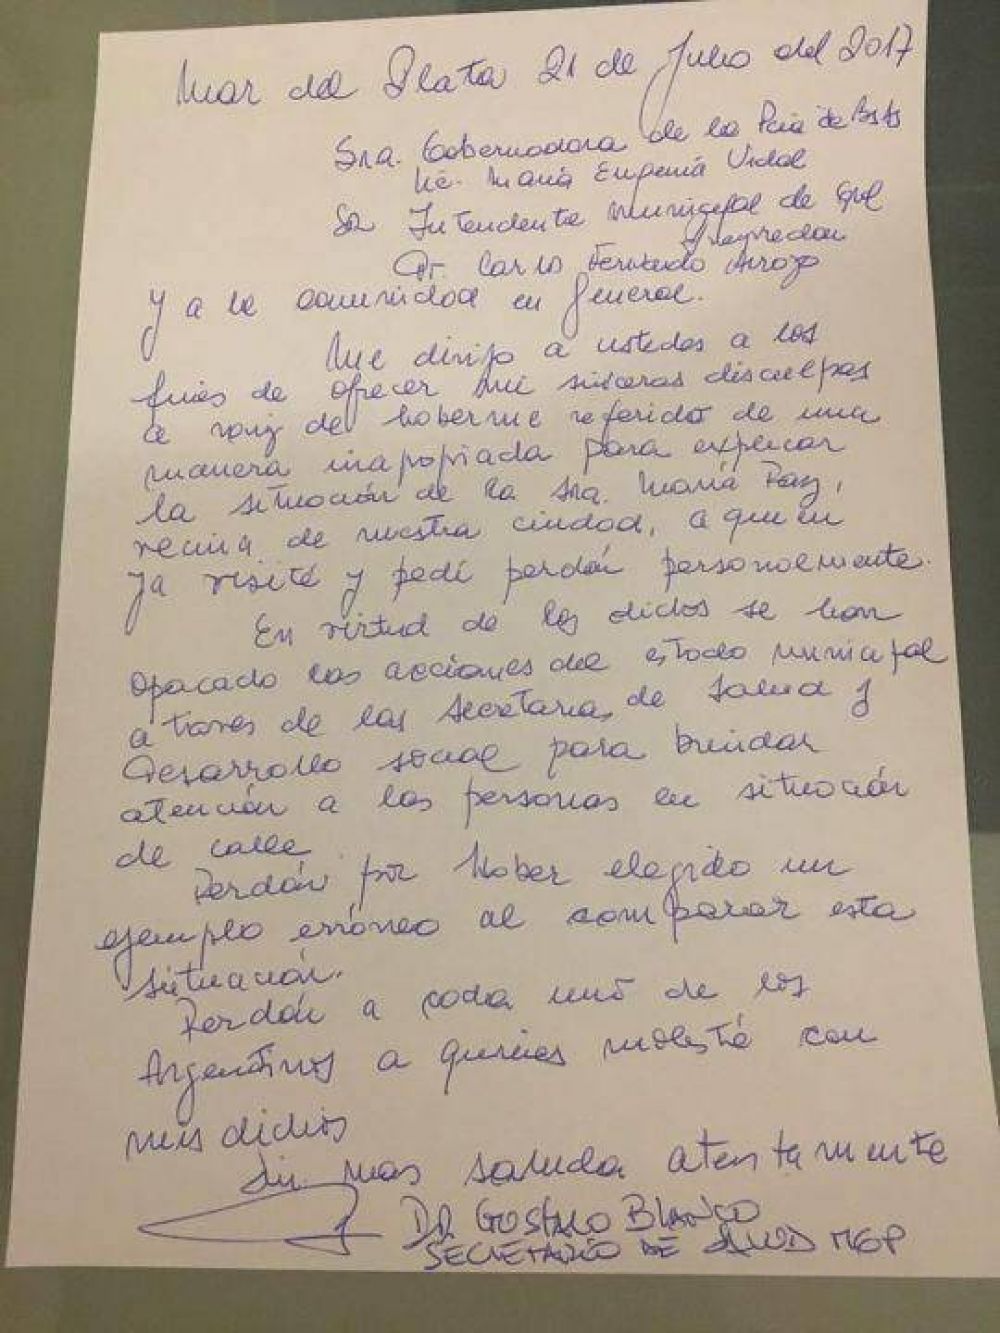 Mar del Plata 21 de Julio del 2017
Sra. Gobernadora de la Pcia de BsAs
Lic. María Eugenia Vidal
Sr Intendente Municipal de Gral
Pueyrredon
Dr. Carlos Fernando Arroyo
y a la comunidad en General.
Me dirijo a ustedes a los
fines de ofrecer mis sinceras disculpas
a raiz de haberme referido de una
manera inapopiada para explicar
la situación de la Sra. María Paz,
vecina de nuestra ciudad, a quien
ya visité y pedí perdón personalmente.
En virtud de los dichos se han
opacado las acciones del estado municipal
a traves de las secretarias de Salud y
Desarrollo social para brindar
atención a las personas en situación
de calle
Perdón por Haber elegido un
ejemplo erróneo al comparar esta
situación.
Perdón a cada uno de los
Argentinos a quienes molesté con
mis dichos
Sin mas saluda atentamente
DR. GUSTAVO BLANCO
SECRETARIO DE SALUD MGP